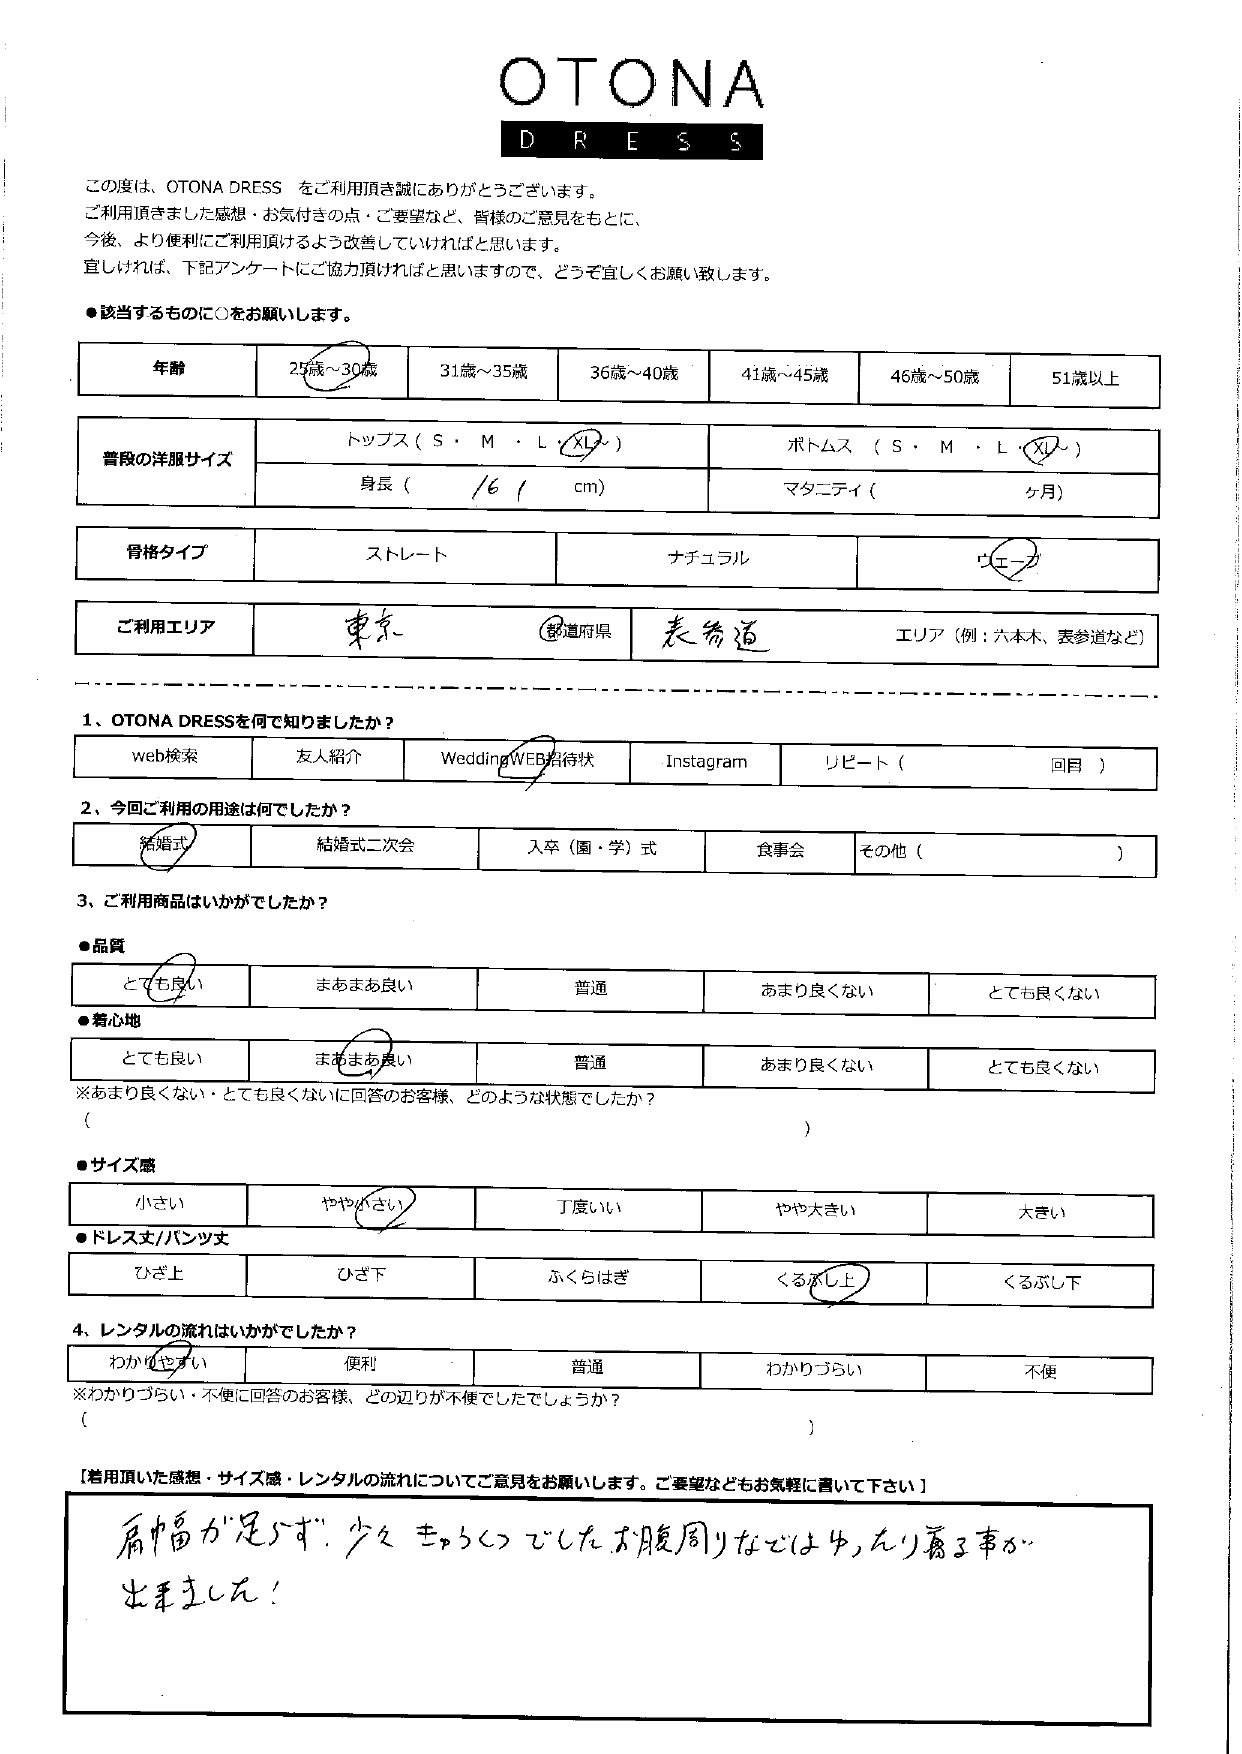 OTONA
DRESS
この度は、OTONA DRESS をご利用頂き誠にありがとうございます。
ご利用頂きました感想・お気付きの点・ご要望など、皆様のご意見をもとに、
今後、より便利にご利用頂けるよう改善していければと思います。
宜しければ、下記アンケートにご協力頂ければと思いますので、どうぞ宜しくお願い致します。
●該当するものに○をお願いします。
年齢 25歳～30歳 31歳～35歳 36歳～40歳 41歳～45歳 46歳～50歳 51歳以上
普段の洋服サイズ トップス ( S ・ M ・ L ・ XL～ ) ボトムス ( S ・ M ・ L ・ XL～ )
身長 ( 161 cm) マタニティ ( ヶ月)
骨格タイプ ストレート ナチュラル ウェーブ
ご利用エリア 東京 都道府県 表参道 エリア（例：六本木、表参道など）
1、OTONA DRESSを何で知りましたか？
web検索 友人紹介 WeddingWEB招待状 Instagram リピート（ 回目 ）
2、今回ご利用の用途は何でしたか？
結婚式 結婚式二次会 入卒（園・学）式 食事会 その他（ ）
3、ご利用商品はいかがでしたか？
●品質
とても良い まあまあ良い 普通 あまり良くない とても良くない
●着心地
とても良い まあまあ良い 普通 あまり良くない とても良くない
※あまり良くない・とても良くないに回答のお客様、どのような状態でしたか？
( )
●サイズ感
小さい やや小さい 丁度いい やや大きい 大きい
●ドレス丈/パンツ丈
ひざ上 ひざ下 ふくらはぎ くるぶし上 くるぶし下
4、レンタルの流れはいかがでしたか？
わかりやすい 便利 普通 わかりづらい 不便
※わかりづらい・不便に回答のお客様、どの辺りが不便でしたでしょうか？
( )
【着用頂いた感想・サイズ感・レンタルの流れについてご意見をお願いします。ご要望などもお気軽に書いて下さい】
肩幅が足らず、少々きゅうくつでした.お腹周りなどはゆったり着る事が
出来ました！